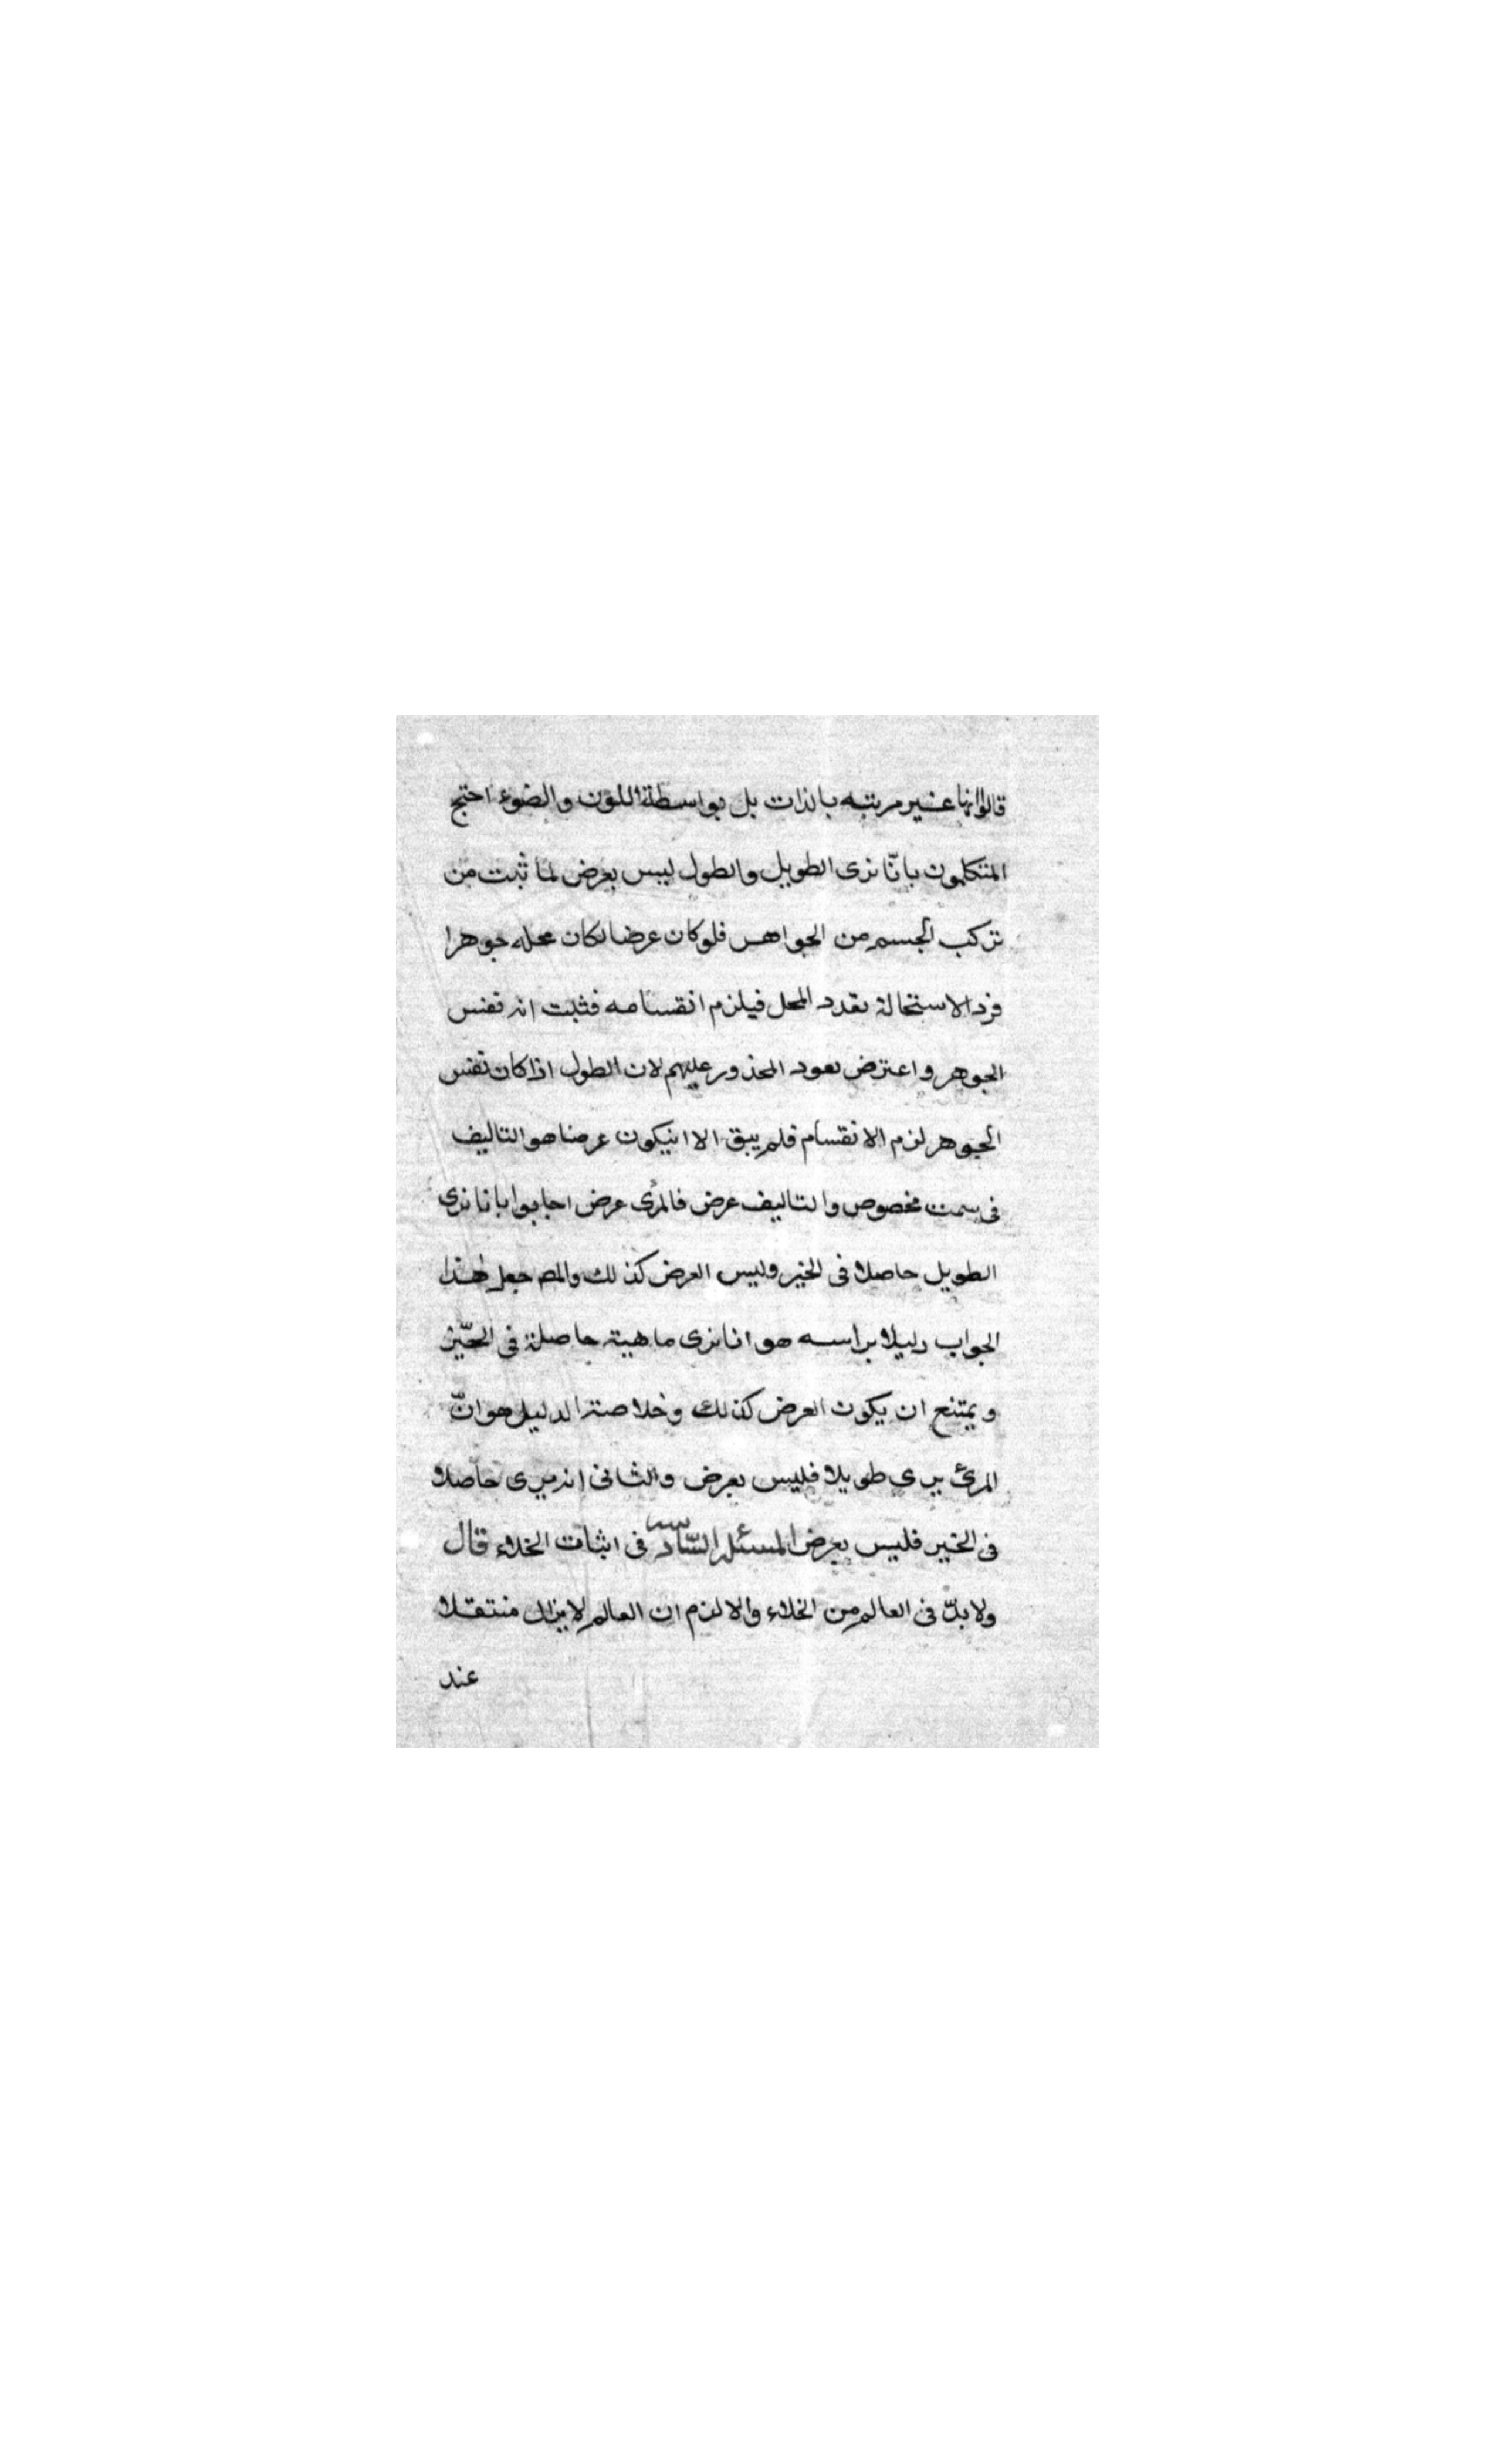 قالوا انها غير مرتبه بالذات بل بواسطة اللون والضوء احتج
المتكلمون بانّا نرى الطويل والطول ليس بعرض لما ثبت من
تركب الجسم من الجواهر فلو كان عرضا لكان محله جوهرا
فردا لاستحالة تعدد المحل فيلزم انقسامه فثبت انه نفس
الجوهر واعترض بعود المحذور عليهم لان الطول اذا كان نفس
الجوهر لزم الانقسام فلم يبق الا انيكون عرضا هو التاليف
فى سمت مخصوص والتاليف عرض فالمرئ عرض اجابوا بانا نرى
الطويل حاصلا فى الخير وليس العرض كذلك والمص جعل هذا
الجواب دليلا براسه هو انا نرى ماهية حاصلة فى الحيّز
ويمتنع ان يكون العرض كذلك وخلاصة الدليل هو انّ
المرئ يرى طويلا فليس بعرض والثانى انه يرى حاصلا
فى الخير فليس بعرض المسئلة السّادسة فى اثبات الخلاء قال
ولا بدّ فى العالم من الخلاء والا لزم ان العالم لا يزال منتقلا
عند